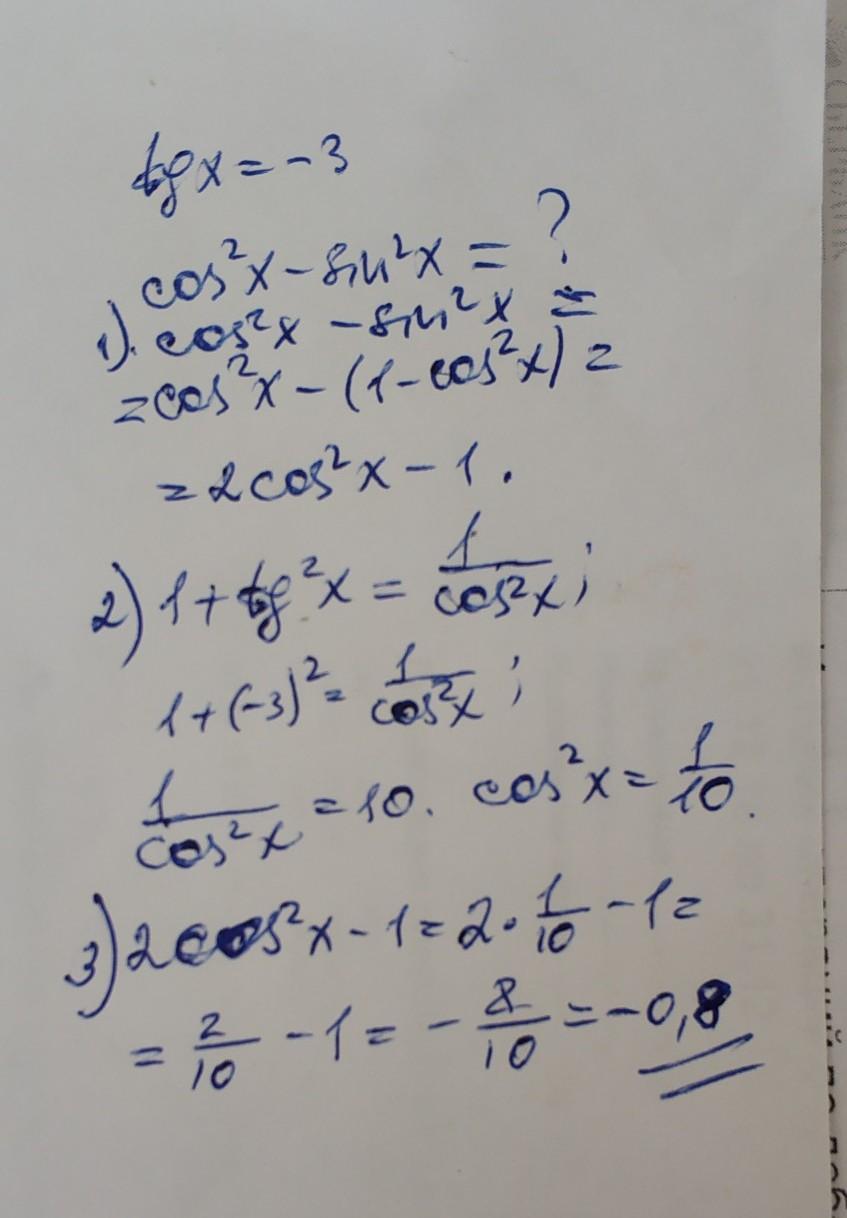 tgx = -3
cos²x - sin²x = ?
1). cos²x - sin²x =
= cos²x - (1 - cos²x) =
= 2cos²x - 1.
2) 1 + tg²x = 1/cos²x ;
1 + (-3)² = 1/cos²x ;
1/cos²x = 10. cos²x = 1/10.
3) 2cos²x - 1 = 2 · 1/10 - 1 =
= 2/10 - 1 = - 8/10 = -0,8